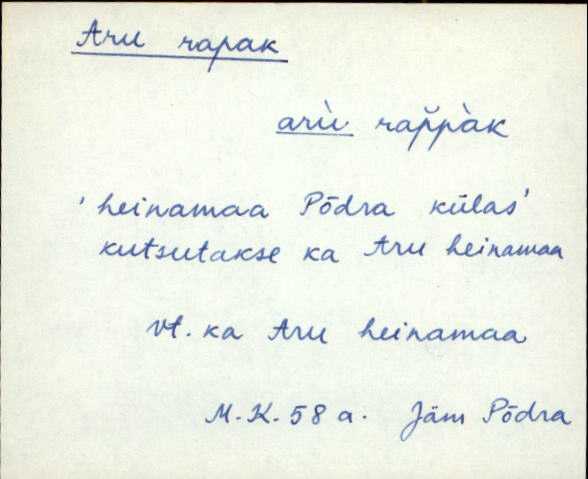 Aru rapak
arù rap̆pàk
'heinamaa Põdra külas'
kutsutakse ka Aru heinamaa
vt. ka Aru heinamaa
M.K. 58 a. Jäm Põdra